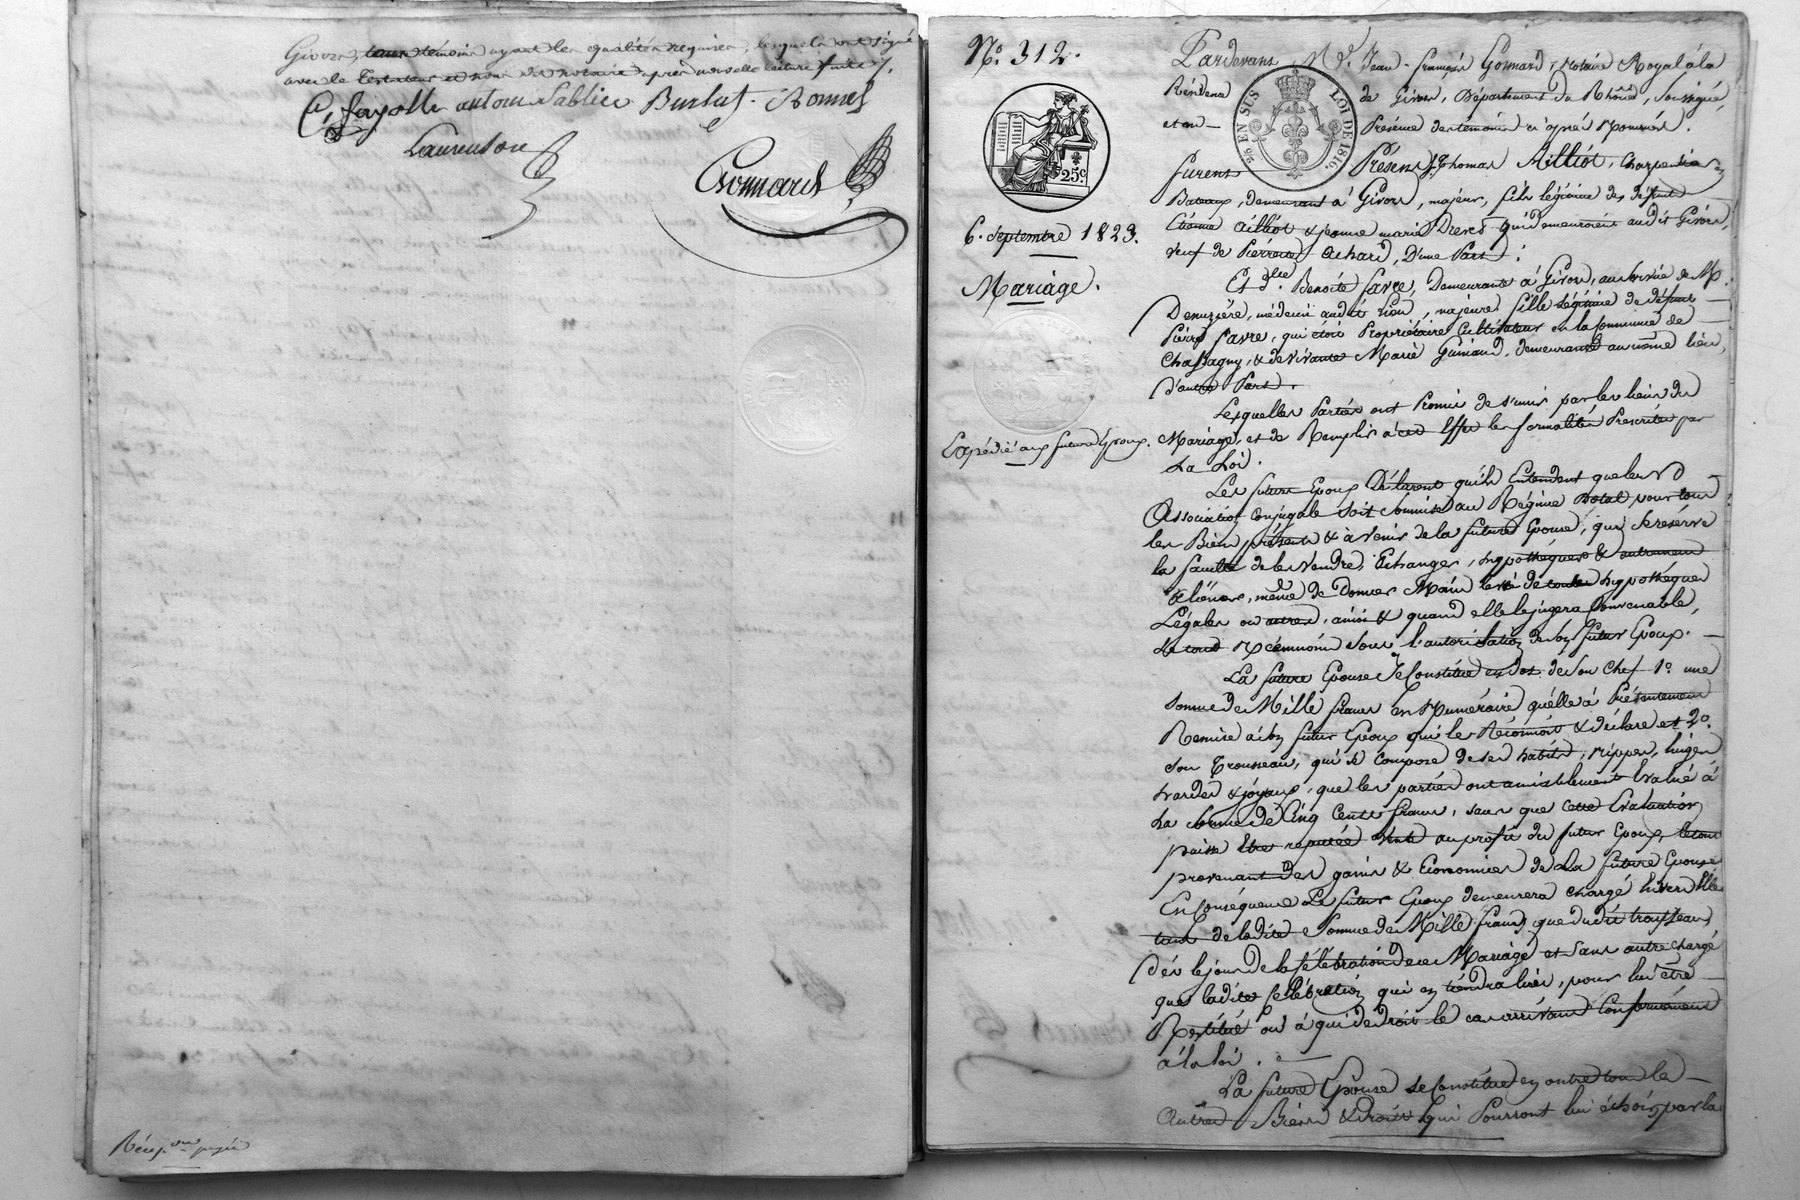 Givors, tous témoins ayant les qualités requises, lesquels ont signé
avec le Testateur et nous dit notaire après nouvelle lecture faite ./.
C. fayolle antoine Sablier Burlat. Bonnel
Laurensone
Gonnard
Récep.on payée
N.o 312.
25c
6. Septembre 1823.
Mariage.
Expédié aux futurs Epoux.
Pardevant M.e Jean-françois Gonnard, Notaire Royal à la
Résidence de Givors, Département du Rhône, soussigné,
EN SUS LOI DE 1816
et en Présence des témoins ci après Nommés.
furent Présens S.r Thomas Ailliot, Charpentier en
Bateaux, demeurant à Givors, majeur, fils légitime des défunts
Etienne Ailliot & Jeanne marie Drevet qui demeuroient audit Givors,
veuf de Pierrette Achard, D'une Part ;
Et d.lle Benoite Favre, Demeurante à Givors, au Service de M.
Deruzière, médecin audit lieu, majeure, fille légitime de défunt
Pierre Favre, qui étoit Propriétaire Cultivateur en la Commune de
Chassagny, & de vivante Marie Guinand, demeurante au même lieu,
d'autre Part.
Lesquelles Parties ont Promis de s'unir par les liens du
Mariage, et de Remplir à cet Effet les formalités Prescrites par
La Loi.
Les futurs Epoux Déclarent qu'ils Entendent que leur
Association Conjugale soit Soumise au Régime dotal pour tous
les Biens présents & à venir de la future Epouse, qui se réserve
la faculté de les Vendre, Echanger, hypothéquer & autrement
Aliéner, même de Donner Main levée de toutes hypothéques
Légales ou autres, ainsi & quand elle le jugera Convenable,
le tout Néanmoins sous l'autorisation de son futur Epoux.
La future Epouse Se Constitue en dot de Son Chef 1.o une
Somme de Mille francs en Numéraire qu'elle a Présentement
Remise à son futur Epoux qui le Reconnoît & déclare et 2.o
Son Trousseau, qui se Compose de ses habits, nippes, linges
hardes & joyaux, que les parties ont amiablement Evalué à
La Somme de Cinq Cents francs, sans que cette Evaluation
puisse Etre reputée vente au profit du futur Epoux, le tout
provenant des gains & Economies de La future Epouse
En Conséquence Le futur Epoux demeurera chargé Envers Elle
tant de ladite Somme de Mille francs, que dudit trousseau,
Dès le jour de la Célébration de ce Mariage et sans autre chargé
que ladite Célébration qui en tiendra lieu, pour lui être
Restitué ou à qui de droit le cas arrivant Conformément
à la Loi.
La future Epouse se Constitue en outre tous les
Autres Biens & droits qui Pourront lui échoir par la